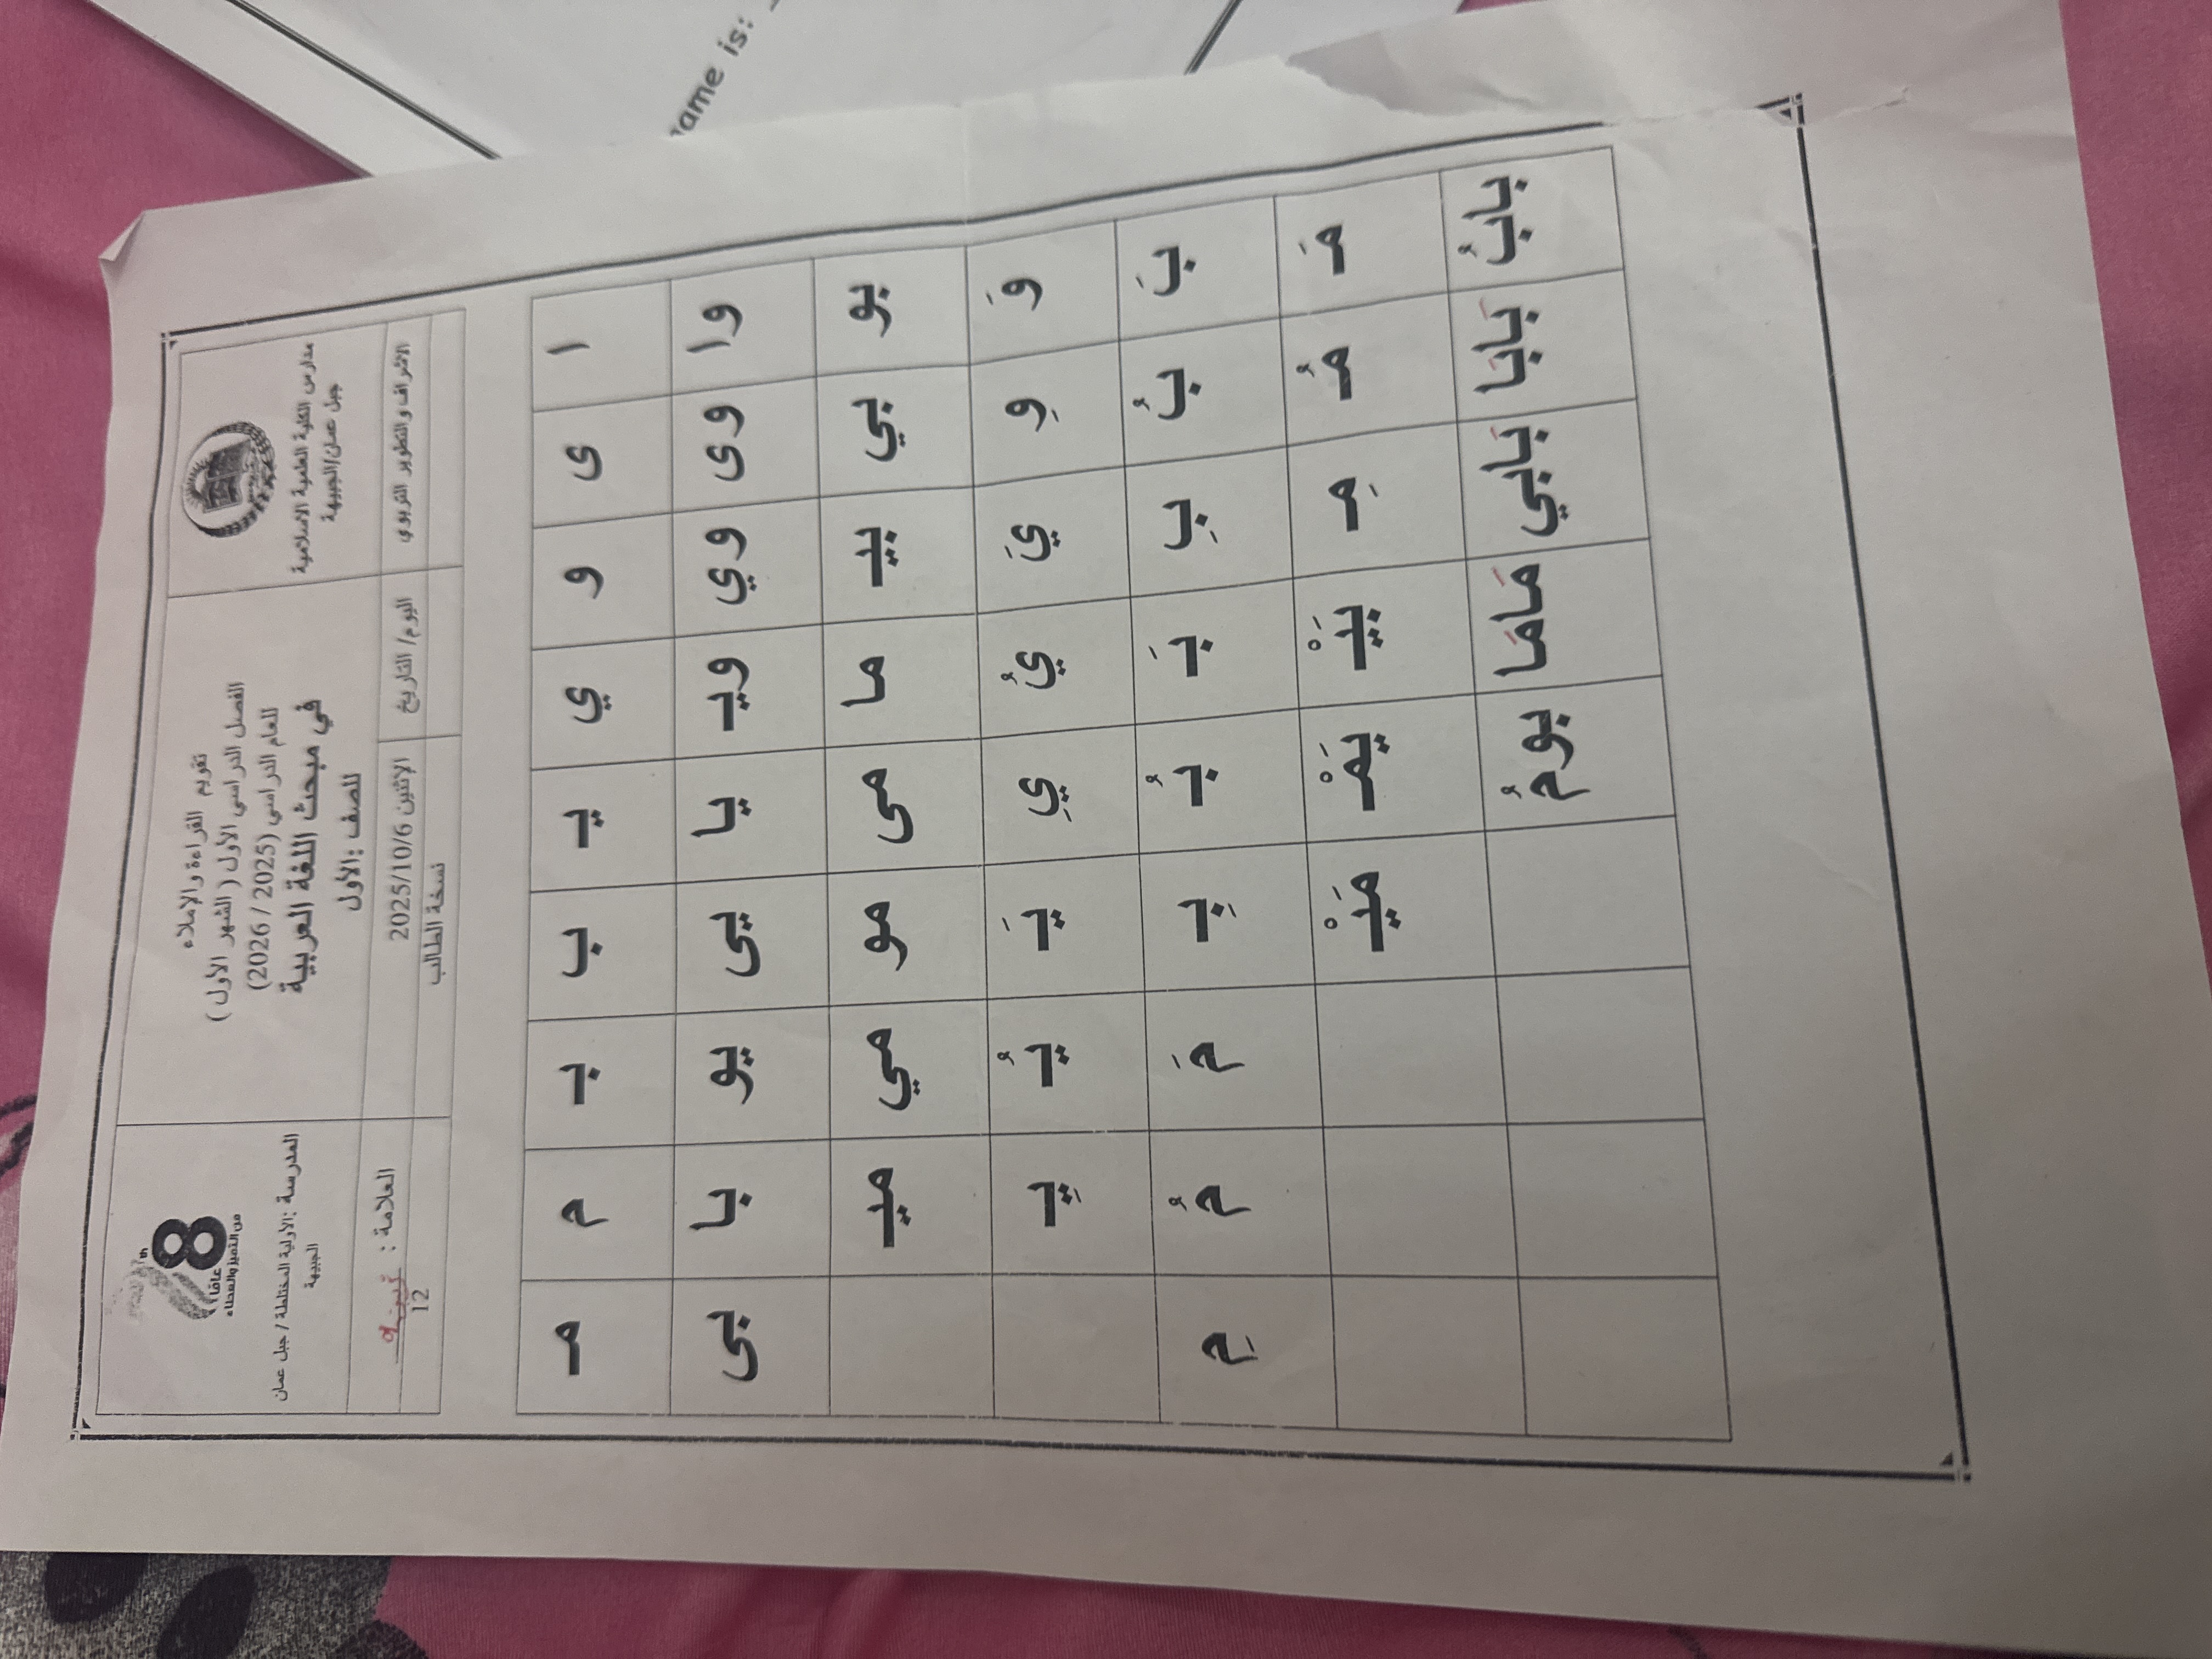 ame is:
مدارس الكلية العلمية الاسلامية
جبل عمان/الجبيهة
تقويم القراءة والإملاء
الفصل الدراسي الأول ( الشهر الأول )
للعام الدراسي (2025 / 2026)
في مبحث اللغة العربية
للصف :الأول
8
عامًا
من التميز والعطاء
المدرسة :الأولية المختلطة / جبل عمان
الجبيهة
الاشراف والتطوير التربوي اليوم/ التاريخ الإثنين 2025/10/6 العلامة :
نسخة الطالب 12
ا ى و ي يـ ب بـ م مـ
وا وى وي ويـ يا يى يو با بى
بو بي بيـ ما مى مو مي ميـ
وَ وِ يَ يُ يِ يَـ يُـ يِـ
بَ بُ بِ بَـ بُـ بِـ مَ مُ مِ
مَـ مُـ مِـ بَيْـ يَمْـ مَيْـ
بابُ بَابَا بَابي مَامَا بومُ